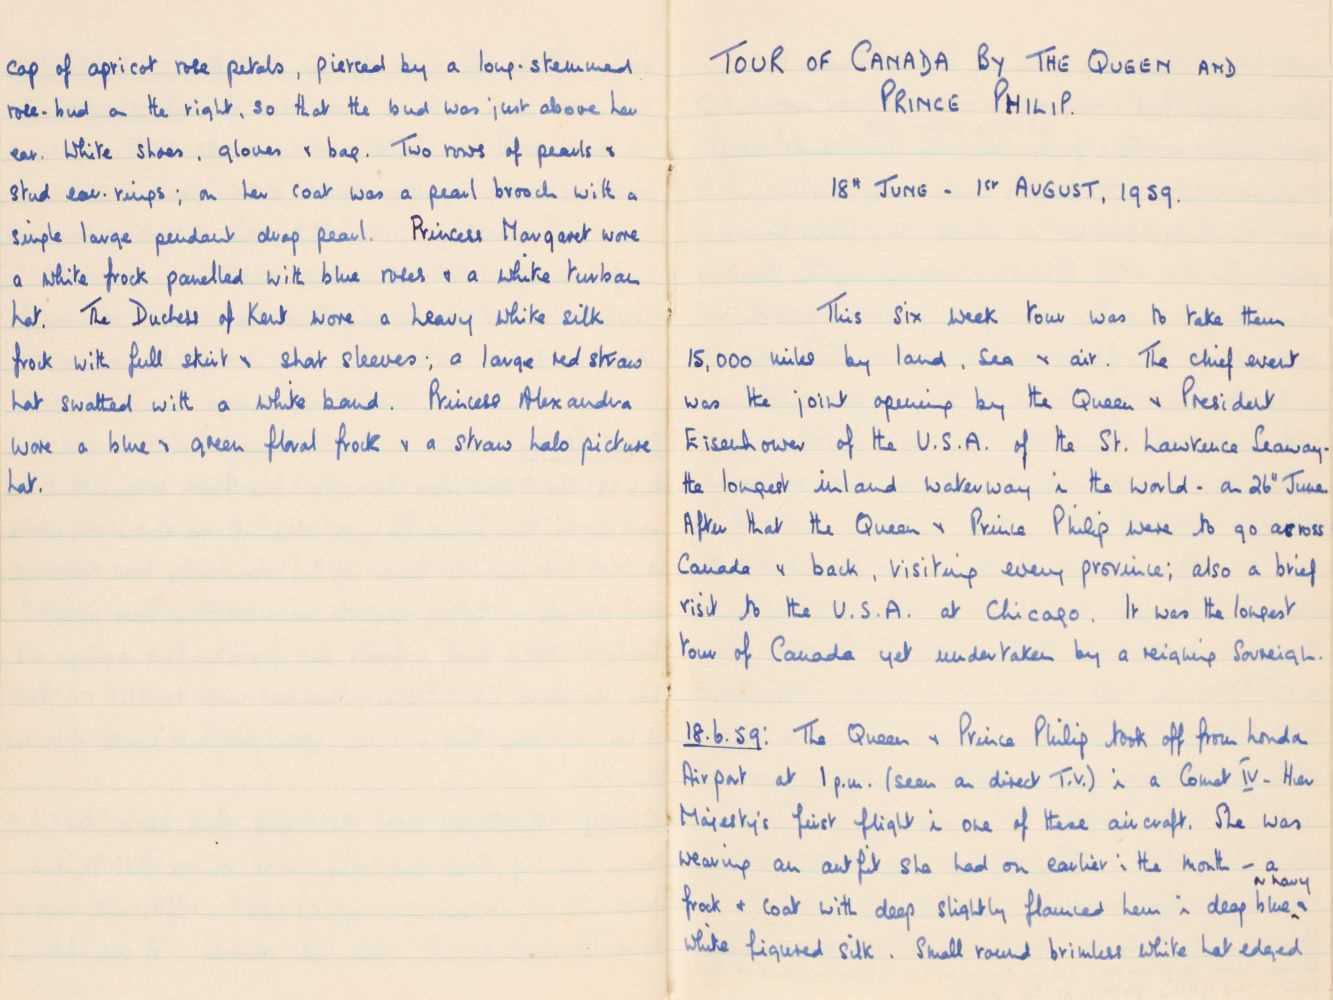 cap of apricot rose petals, pierced by a long-stemmed
rose-bud on the right, so that the bud was just above her
ear. White shoes, gloves & bag. Two rows of pearls &
stud ear-rings; on her coat was a pearl brooch with a
single large pendant drop pearl. Princess Margaret wore
a white frock panelled with blue roses & a white turban
hat. The Duchess of Kent wore a heavy white silk
frock with full skirt & short sleeves; a large red straw
hat swatted with a white band. Princess Alexandra
wore a blue & green floral frock & a straw halo picture
hat.
TOUR OF CANADA BY THE QUEEN AND
PRINCE PHILIP.
18TH JUNE - 1ST AUGUST, 1959.
This six week tour was to take them
15,000 miles by land, sea & air. The chief event
was the joint opening by the Queen & President
Eisenhower of the U.S.A. of the St. Lawrence Seaway -
the longest inland waterway in the world - on 26th June.
After that the Queen & Prince Philip were to go across
Canada & back, visiting every province; also a brief
visit to the U.S.A. at Chicago. It was the longest
tour of Canada yet undertaken by a reigning Sovreign.
18.6.59: The Queen & Prince Philip took off from London
Airport at 1 p.m. (seen on direct T.V.) in a Comet IV - Her
Majesty's first flight in one of these aircraft. She was
wearing an outfit she had on earlier in the month - a
frock & coat with deep slightly flounced hem in deep blue or navy &
white figured silk. Small round brimless white hat edged